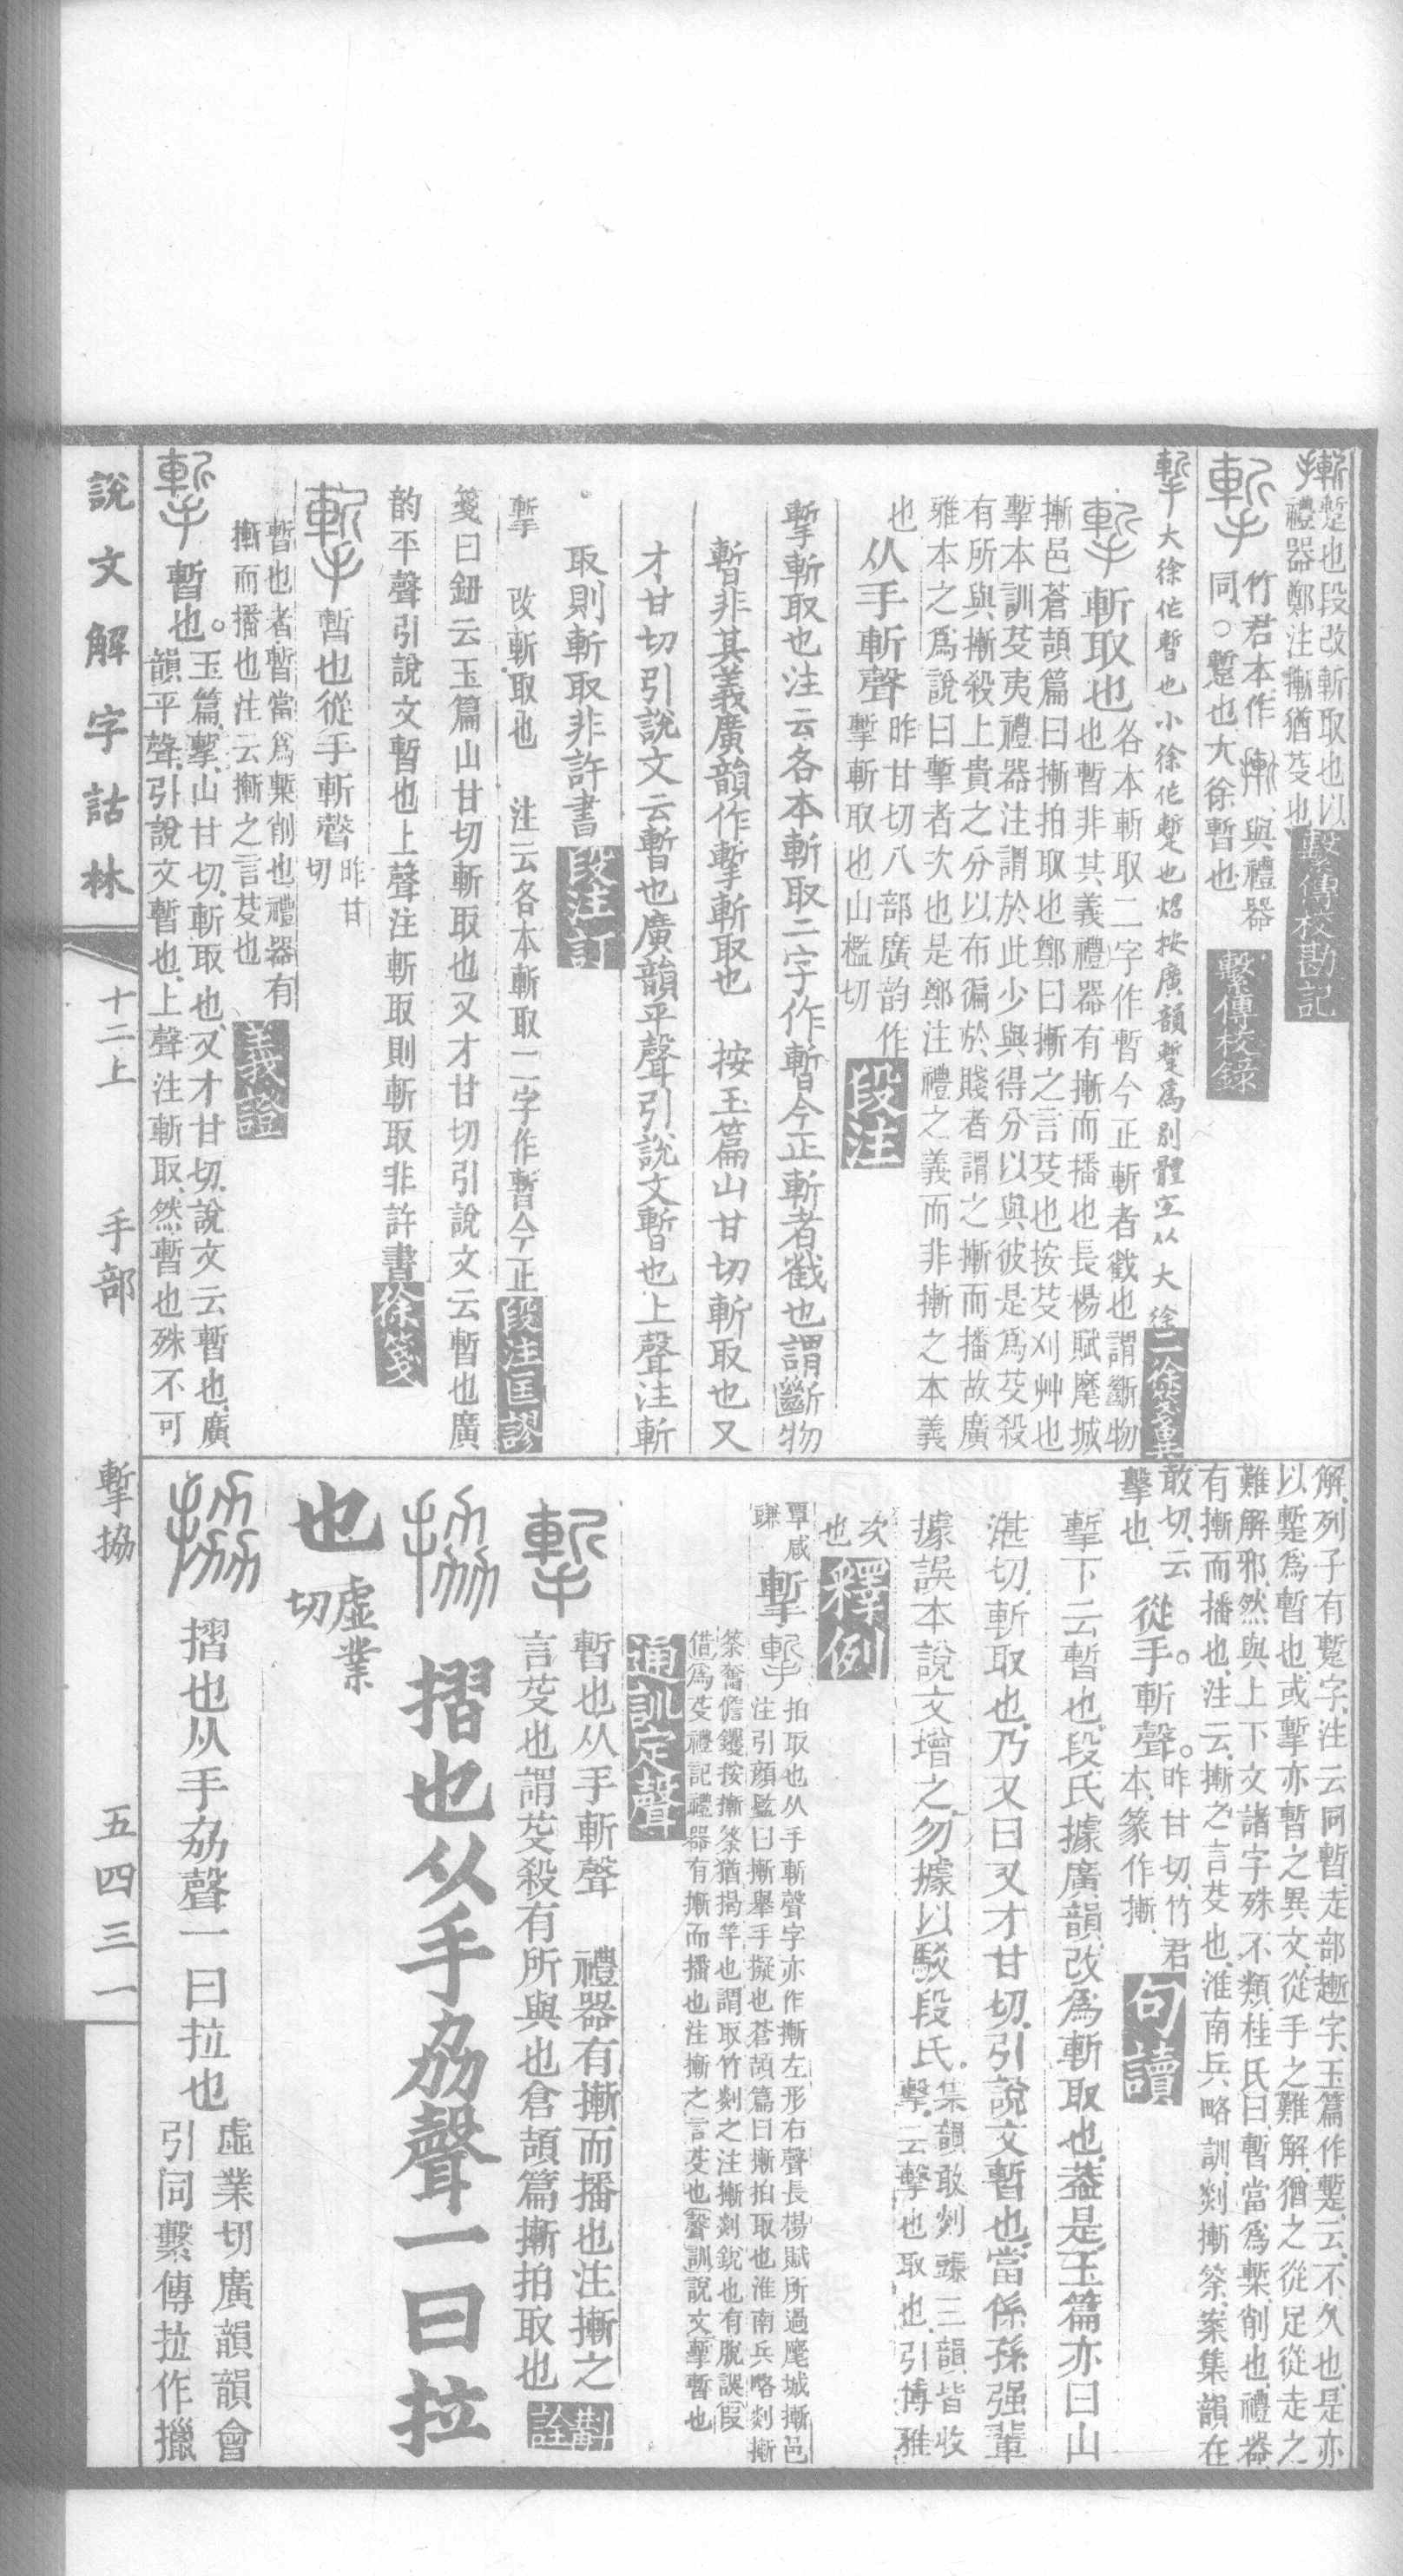 摲蹔也段改斬取也以
禮器鄭注摲猶芟也繫傳校勘記
竹君本作摲與禮器
同○蹔也大徐暫也繫傳校錄
摲大徐作暫也小徐作蹔也炤按廣韻蹔爲別體宜从大徐二徐箋異
斬取也各本斬取二字作暫今正斬者𢧵也謂斷物
也暫非其義禮器有摲而播也長楊賦麾城
摲邑蒼頡篇曰摲拍取也鄭曰摲之言芟也按芟刈艸也
摲本訓芟夷禮器注謂於此少與得分以與彼是爲芟殺
有所與摲殺上貴之分以布徧於賤者謂之摲而播故廣
雅本之爲說曰摲者次也是鄭注禮之義而非摲之本義
也从手斬聲昨甘切八部廣韵作
摲斬取也山檻切段注
摲斬取也注云各本斬取二字作暫今正斬者𢧵也謂斷物
暫非其義廣韻作摲斬取也 按玉篇山甘切斬取也又
才甘切引說文云暫也廣韻平聲引說文暫也上聲注斬
取則斬取非許書段注訂
摲 改斬取也 注云各本斬取二字作暫今正段注匡謬
箋曰鈕云玉篇山甘切斬取也又才甘切引說文云暫也廣
韵平聲引說文暫也上聲注斬取則斬取非許書徐箋
暫也從手斬聲昨甘
切
暫也者暫當爲槧削也禮器有
摲而播也注云摲之言芟也義證
暫也。玉篇摲山甘切斬取也又才甘切說文云暫也廣
韻平聲引說文暫也上聲注斬取然暫也殊不可
解列子有蹔字注云同暫走部䟅字玉篇作蹔云不久也是亦
以蹔爲暫也或摲亦暫之異文從手之難解猶之從足從走之
難解邪然與上下文諸字殊不類桂氏曰暫當爲槧削也禮器
有摲而播也注云摲之言芟也淮南兵略訓剡摲筡案集韻在
敢切云
擊也從手。斬聲。昨甘切竹君
本篆作摲句讀
摲下云暫也段氏據廣韻改爲斬取也葢是玉篇亦曰山
湛切斬取也乃又曰又才甘切引說文暫也當係孫强輩
據誤本說文增之勿據以駁段氏集韻敢剡豏三韻皆收
摲云擊也取也引博雅
次
也釋例
覃咸
豏摲拍取也从手斬聲字亦作摲左形右聲長楊賦所過麾城摲邑
注引顔監曰摲舉手擬也蒼頡篇曰摲拍取也淮南兵略剡摲
筡奮儋钁按摲筡猶揭竿也謂取竹剡之注摲剡銳也有脫誤假
借爲芟禮記禮器有摲而播也注摲之言芟也聲訓說文摲暫也
通訓定聲
暫也从手斬聲 禮器有摲而播也注摲之
言芟也謂芟殺有所與也倉頡篇摲拍取也斠詮
摺也从手劦聲一曰拉
也虛業
切
摺也从手劦聲一曰拉也虛業切廣韻韻會
引同繫傳拉作擸
說文解字詁林 十二上 手部 摲拹 五四三一